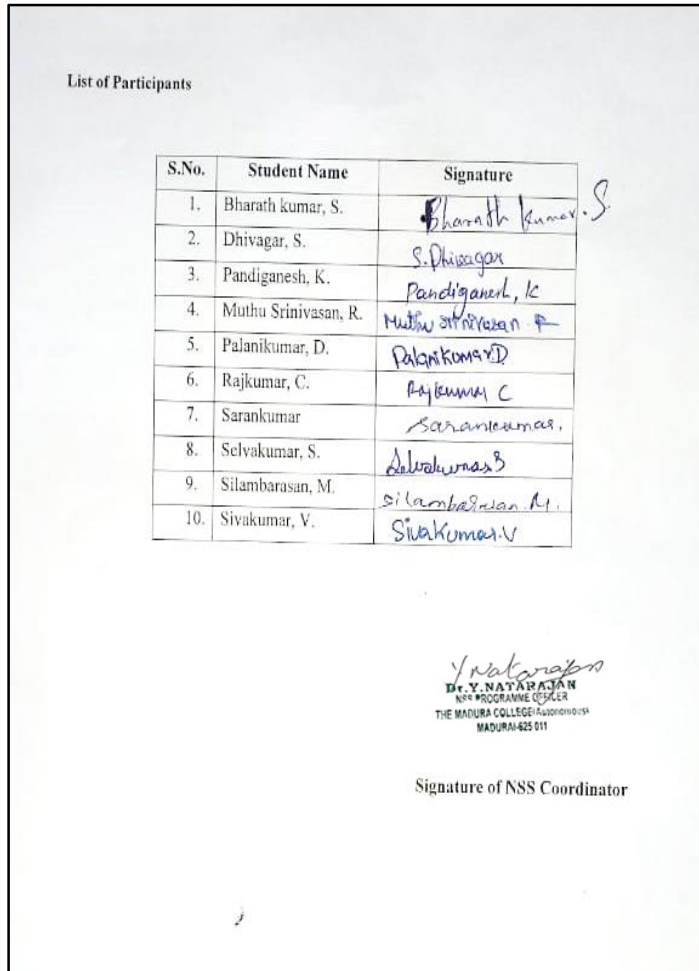 List of Participants
S.No. Student Name Signature
1. Bharath kumar, S. Bharath kumar. S.
2. Dhivagar, S. S. Dhivagar
3. Pandiganesh, K. Pandiganesh, K
4. Muthu Srinivasan, R. Muthu srinivasan. R
5. Palanikumar, D. Palanikumar D
6. Rajkumar, C. Rajkumar C
7. Sarankumar Sarankumar.
8. Selvakumar, S. Selvakumar S
9. Silambarasan, M. Silambarasan. M.
10. Sivakumar, V. Sivakumar. V
Y Natarajan
Dr.Y.NATARAJAN
NSS PROGRAMME OFFICER
THE MADURA COLLEGE (Autonomous)
MADURAI-625 011
Signature of NSS Coordinator